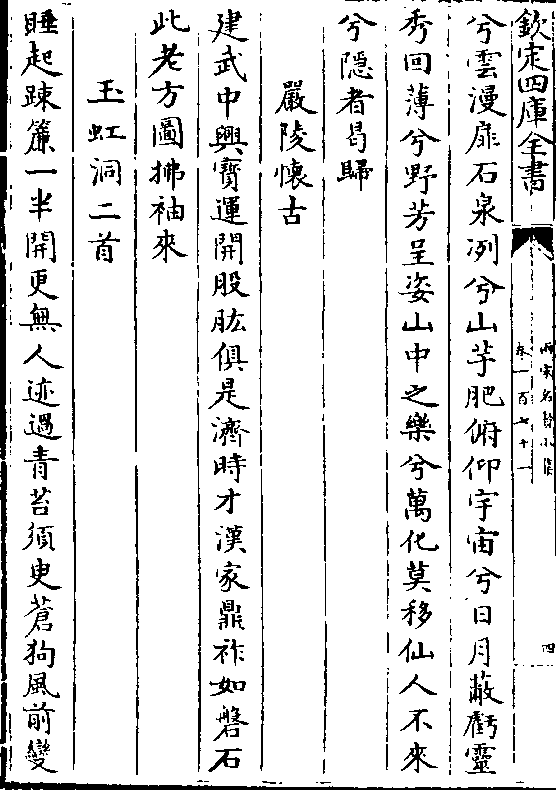 欽定四庫全書
兩宋名賢小集
卷一百七十一
四
兮雲漫扉石泉冽兮山芋肥俯仰宇宙兮日月蔽虧靈
秀回薄兮野芳呈姿山中之樂兮萬化莫移仙人不來
兮隱者曷歸
嚴陵懷古
建武中興寳運開股肱俱是濟時才漢家鼎祚如磐石
此老方圖拂袖來
玉虹洞二首
睡起踈簾一半開更無人迹過青苔須臾蒼狗風前變